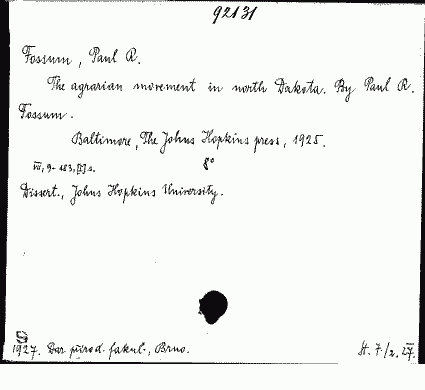 92131
Fossum, Paul R.
The agrarian movement in north Dakota. By Paul R.
Fossum.
Baltimore, The Johns Hopkins press, 1925.
VII, 9-183, [1] s. 8°
Dissert., Johns Hopkins University.
S
1927. Dar přírod. fakul., Brno. St. 7/2. 27.